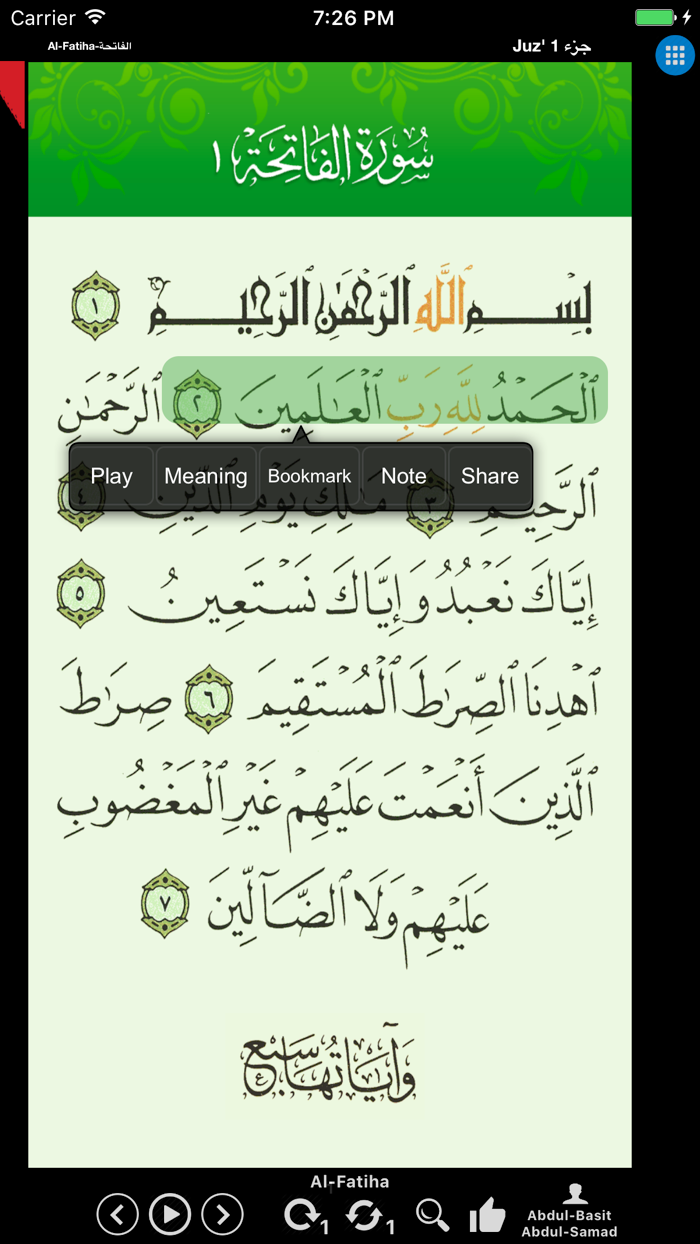 Carrier 7:26 PM
Al-Fatiha-الفاتحة Juz' 1 جزء
سُورَةُ الفَاتِحَة ١
بِسْمِ ٱللَّهِ ٱلرَّحْمَٰنِ ٱلرَّحِيمِ ١
ٱلْحَمْدُ لِلَّهِ رَبِّ ٱلْعَٰلَمِينَ ٢ ٱلرَّحْمَٰنِ
Play Meaning Bookmark Note Share
ٱلرَّحِيمِ ٣ مَٰلِكِ يَوْمِ ٱلدِّينِ ٤
إِيَّاكَ نَعْبُدُ وَإِيَّاكَ نَسْتَعِينُ ٥
ٱهْدِنَا ٱلصِّرَٰطَ ٱلْمُسْتَقِيمَ ٦ صِرَٰطَ
ٱلَّذِينَ أَنْعَمْتَ عَلَيْهِمْ غَيْرِ ٱلْمَغْضُوبِ
عَلَيْهِمْ وَلَا ٱلضَّآلِّينَ ٧
وَآيَاتُهَا سَبْع
Al-Fatiha
1 1
Abdul-Basit
Abdul-Samad